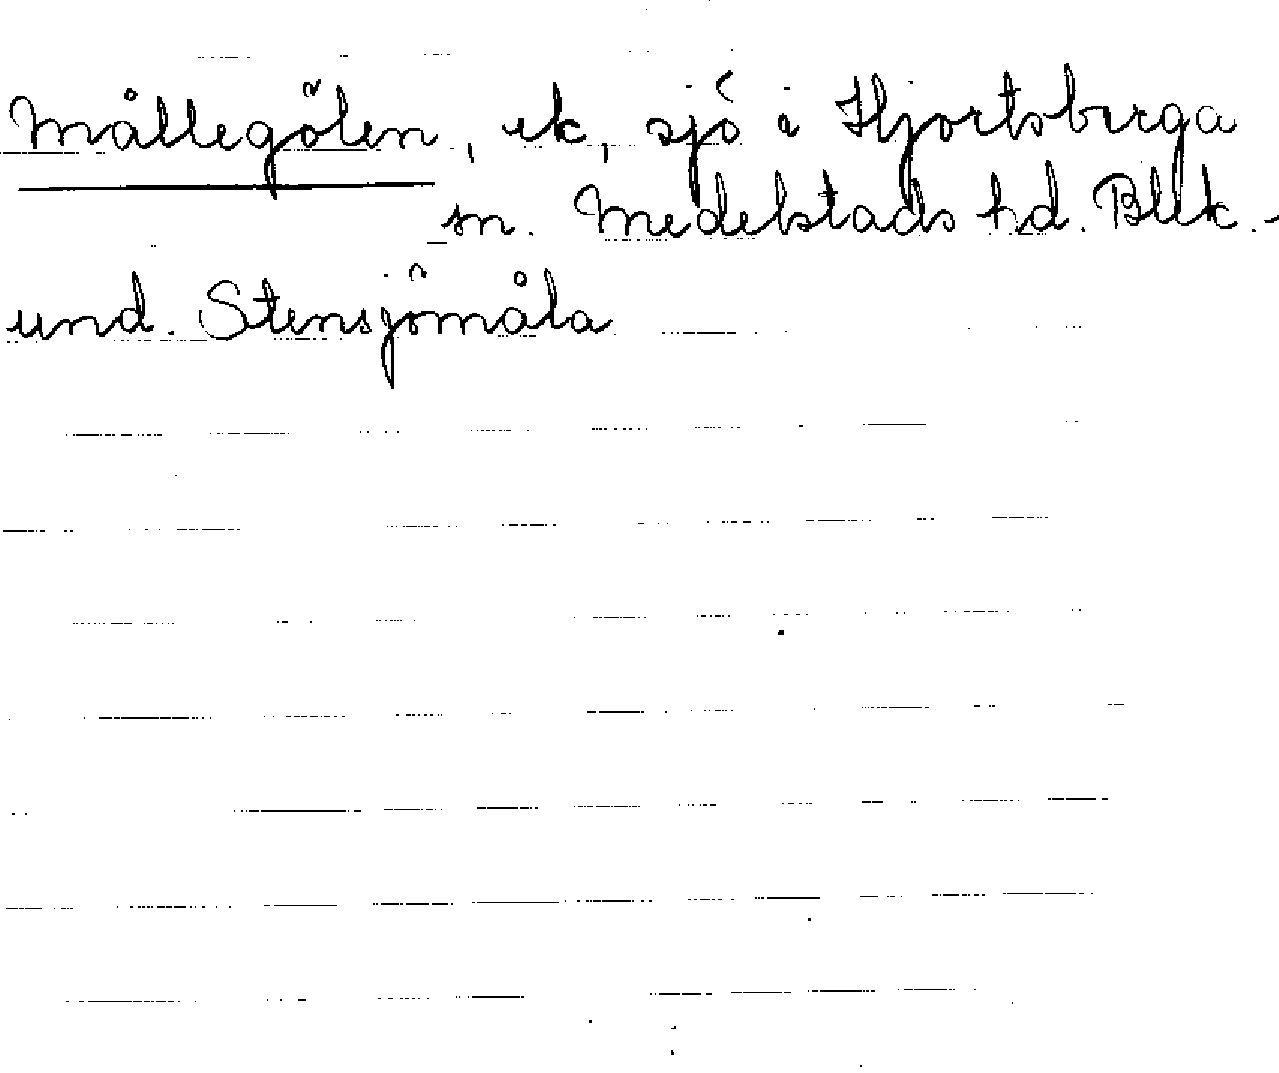 Mållegölen, ek, sjö i Hjortsberga
sn. Medelstads hd. Blek.-
und. Stensjömåla